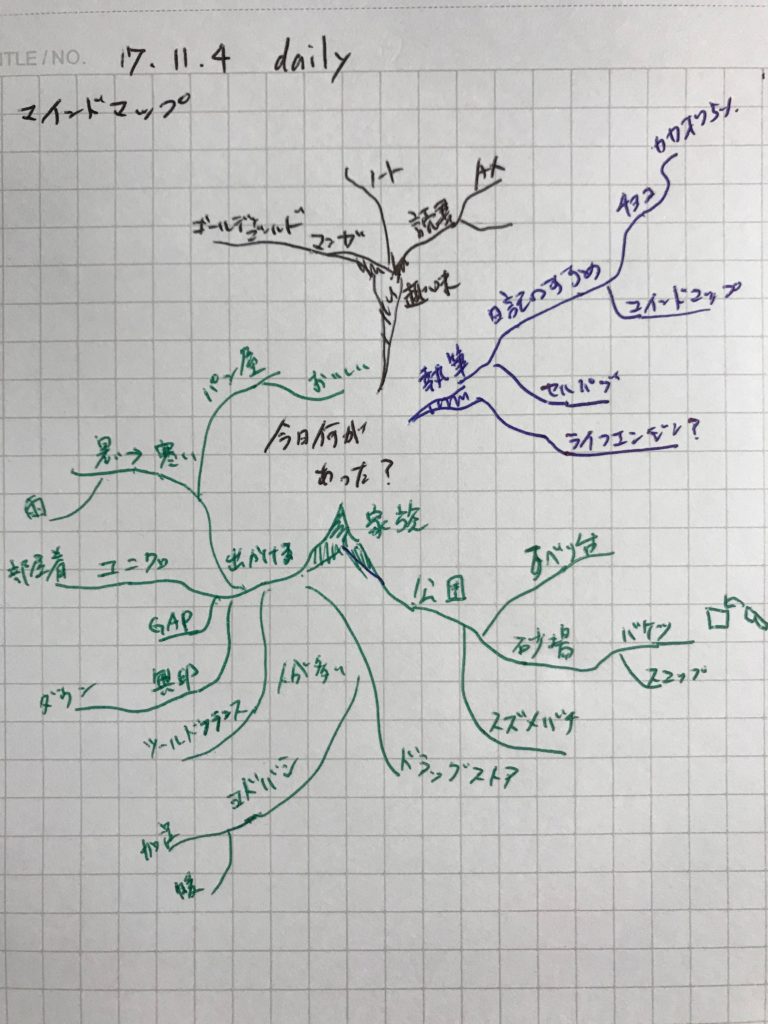 TITLE/NO.
17.11.4 daily
マインドマップ
今日何が
あった?
趣味
マンガ
ゴールデンゴールド
ノート
読書
執筆
日記のすすめ
チョコ
マインドマップ
セルパブ
ライフエンジン?
家族
公園
すべり台
砂場
バケツ
スコップ
スズメバチ
出かける
パン屋
おいしい
暑い→寒い
雨
ユニクロ
部屋着
GAP
無印
ダウン
ツールドフランス
人が多い
ヨドバシ
加湿
暖
ドラッグストア